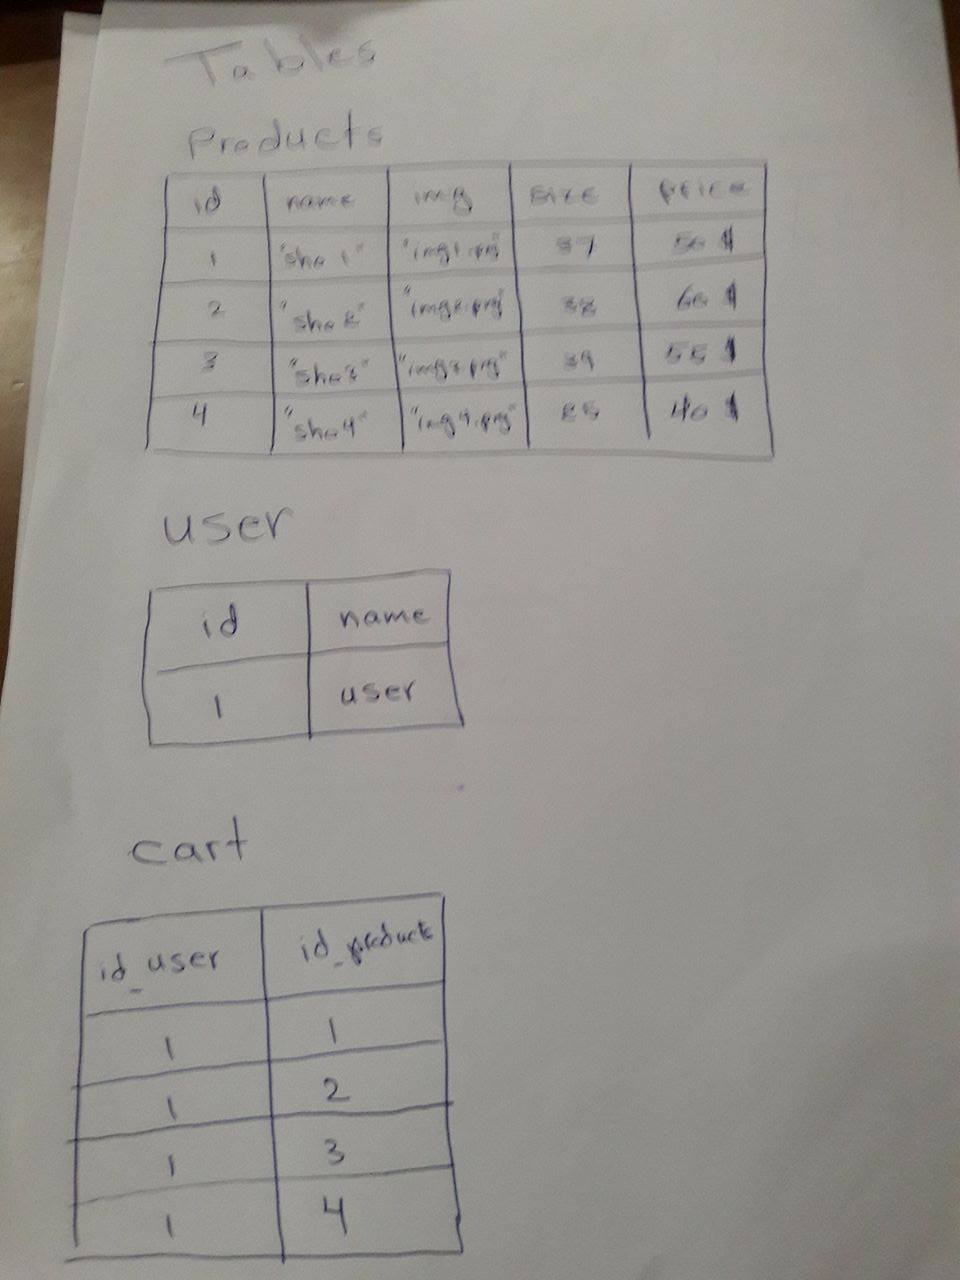 Tables
Products
id name img size price
1 "sho1" "img1.png" 37 50 $
2 "sho2" "img2.png" 38 60 $
3 "sho3" "img3.png" 39 55 $
4 "sho4" "img4.png" 40 $
user
id name
1 user
cart
id_user id_products
1 1
1 2
1 3
1 4